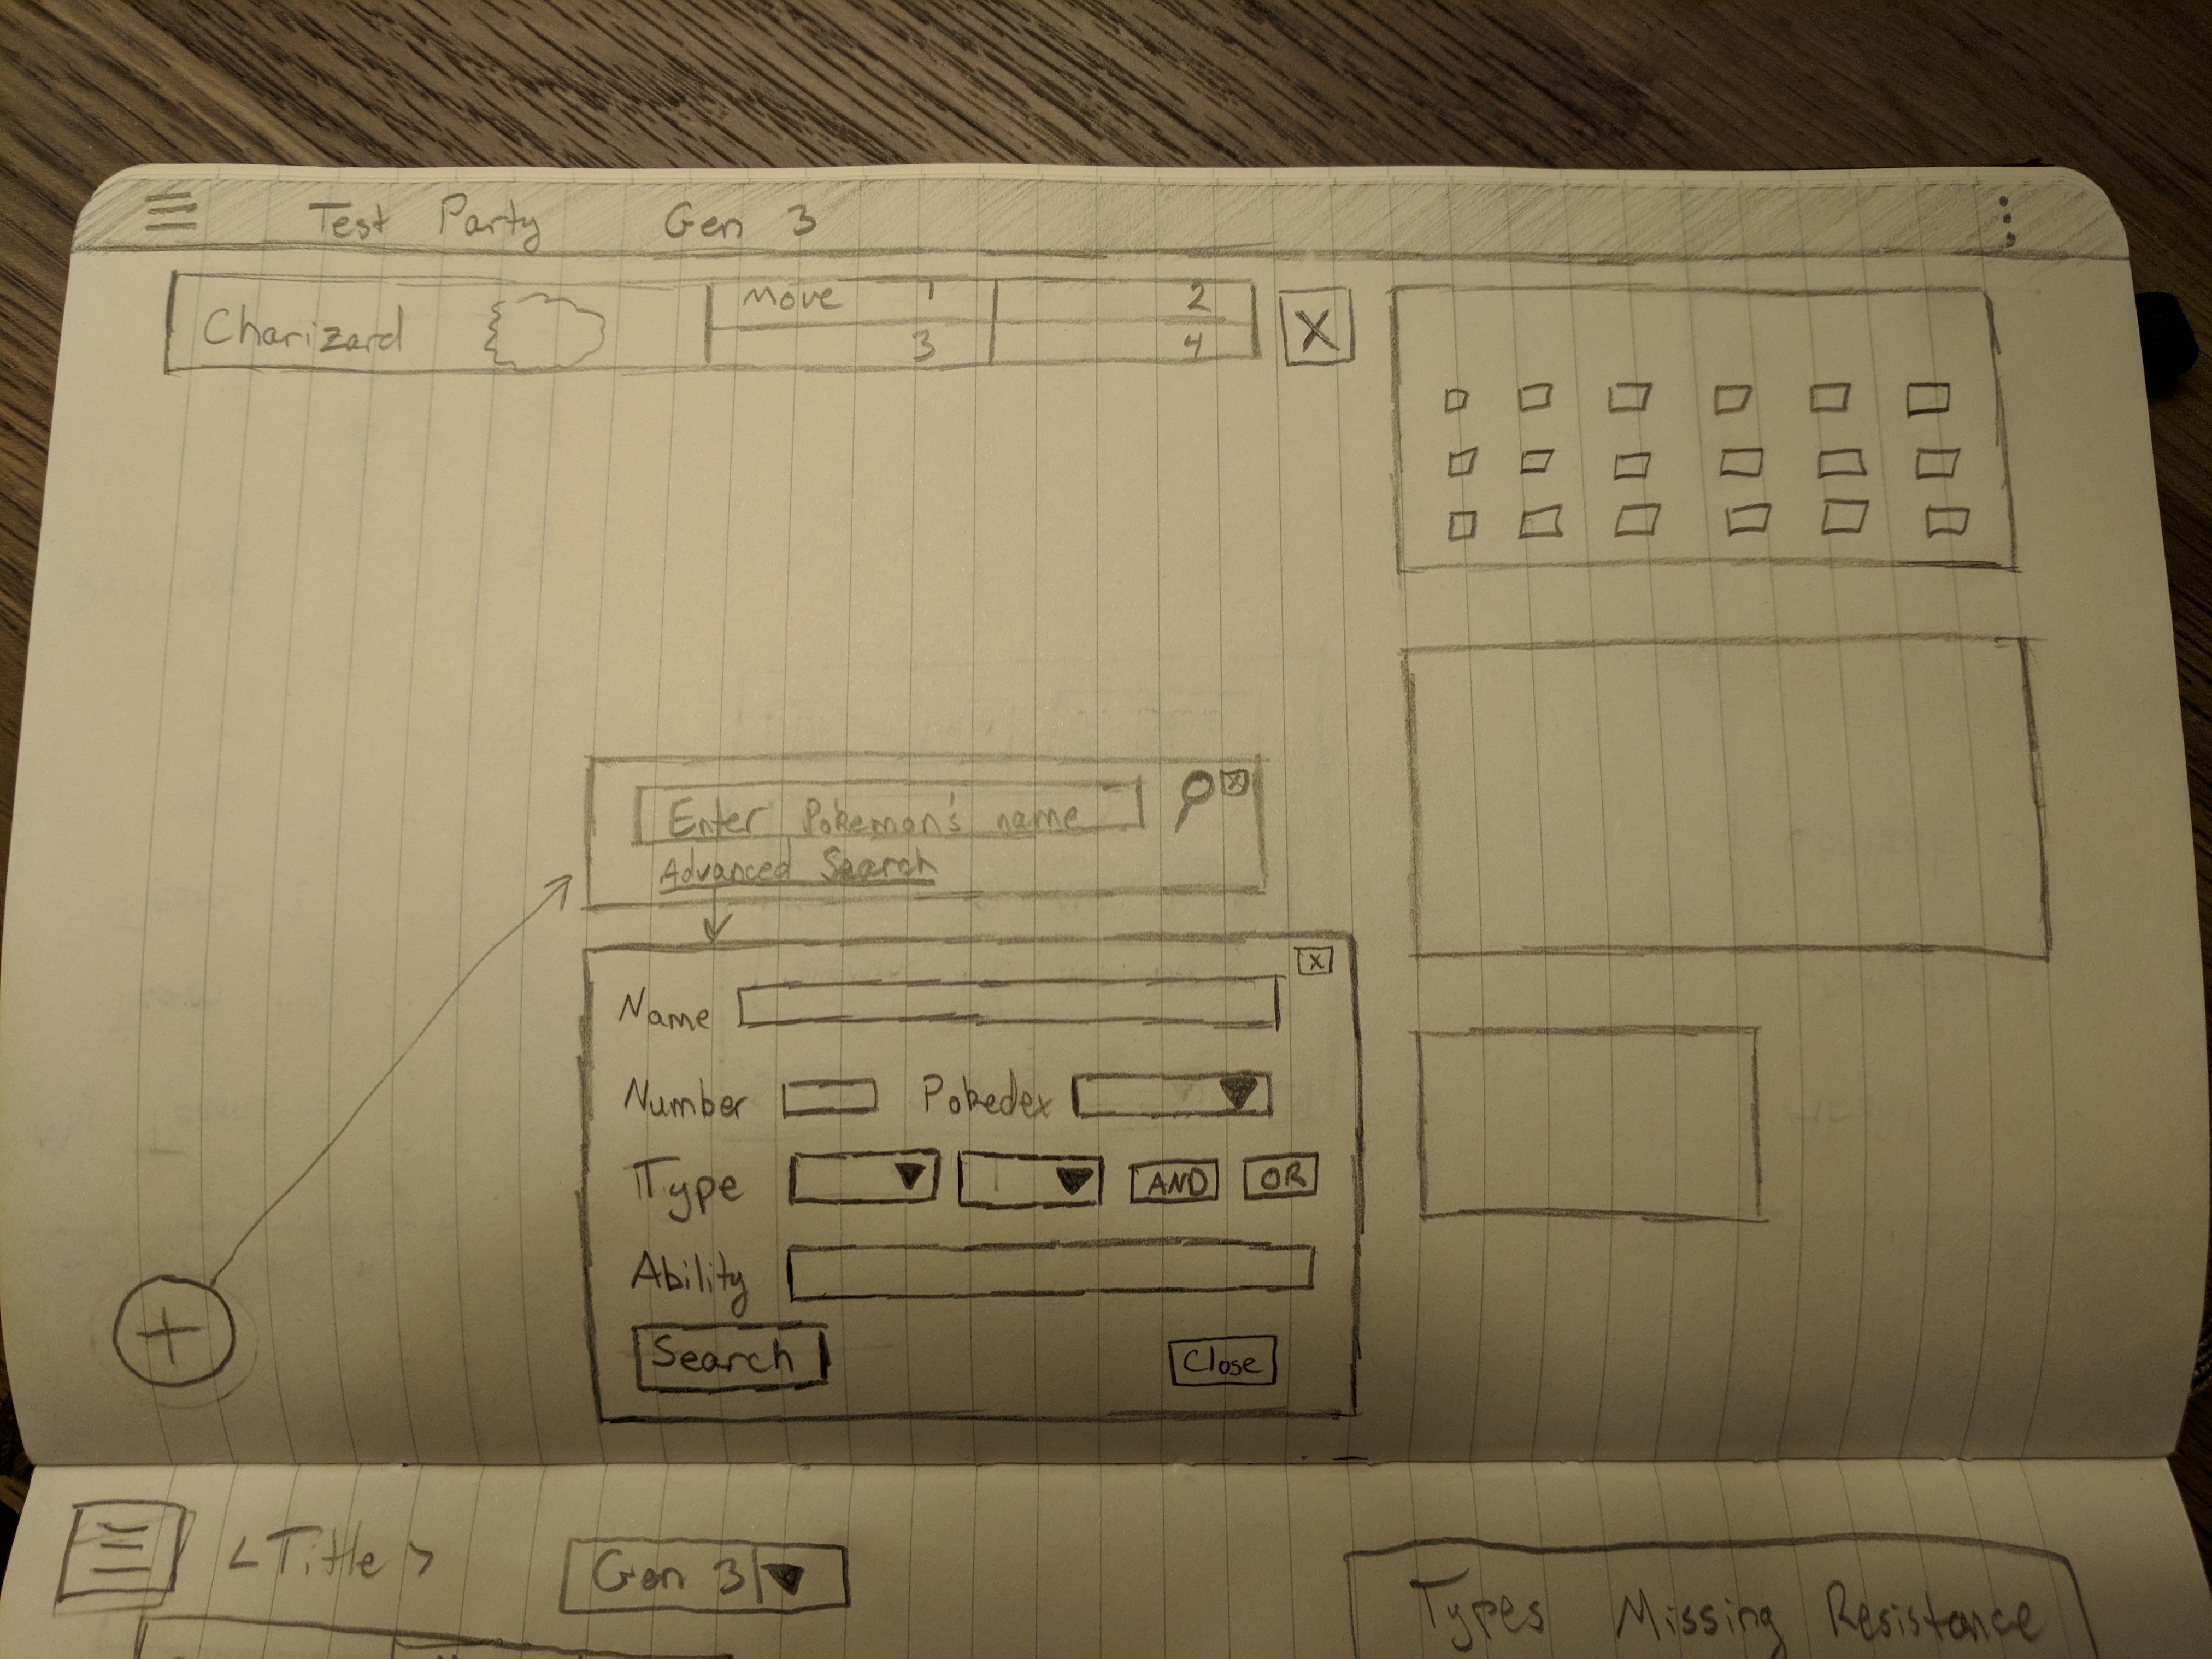 Test Party Gen 3
Charizard
Move 1 2
3 4
X
Enter Pokemon's name
X
Advanced Search
X
Name
Number Pokedex
Type AND OR
Ability
Search Close
<Title> Gen 3
Types Missing Resistance